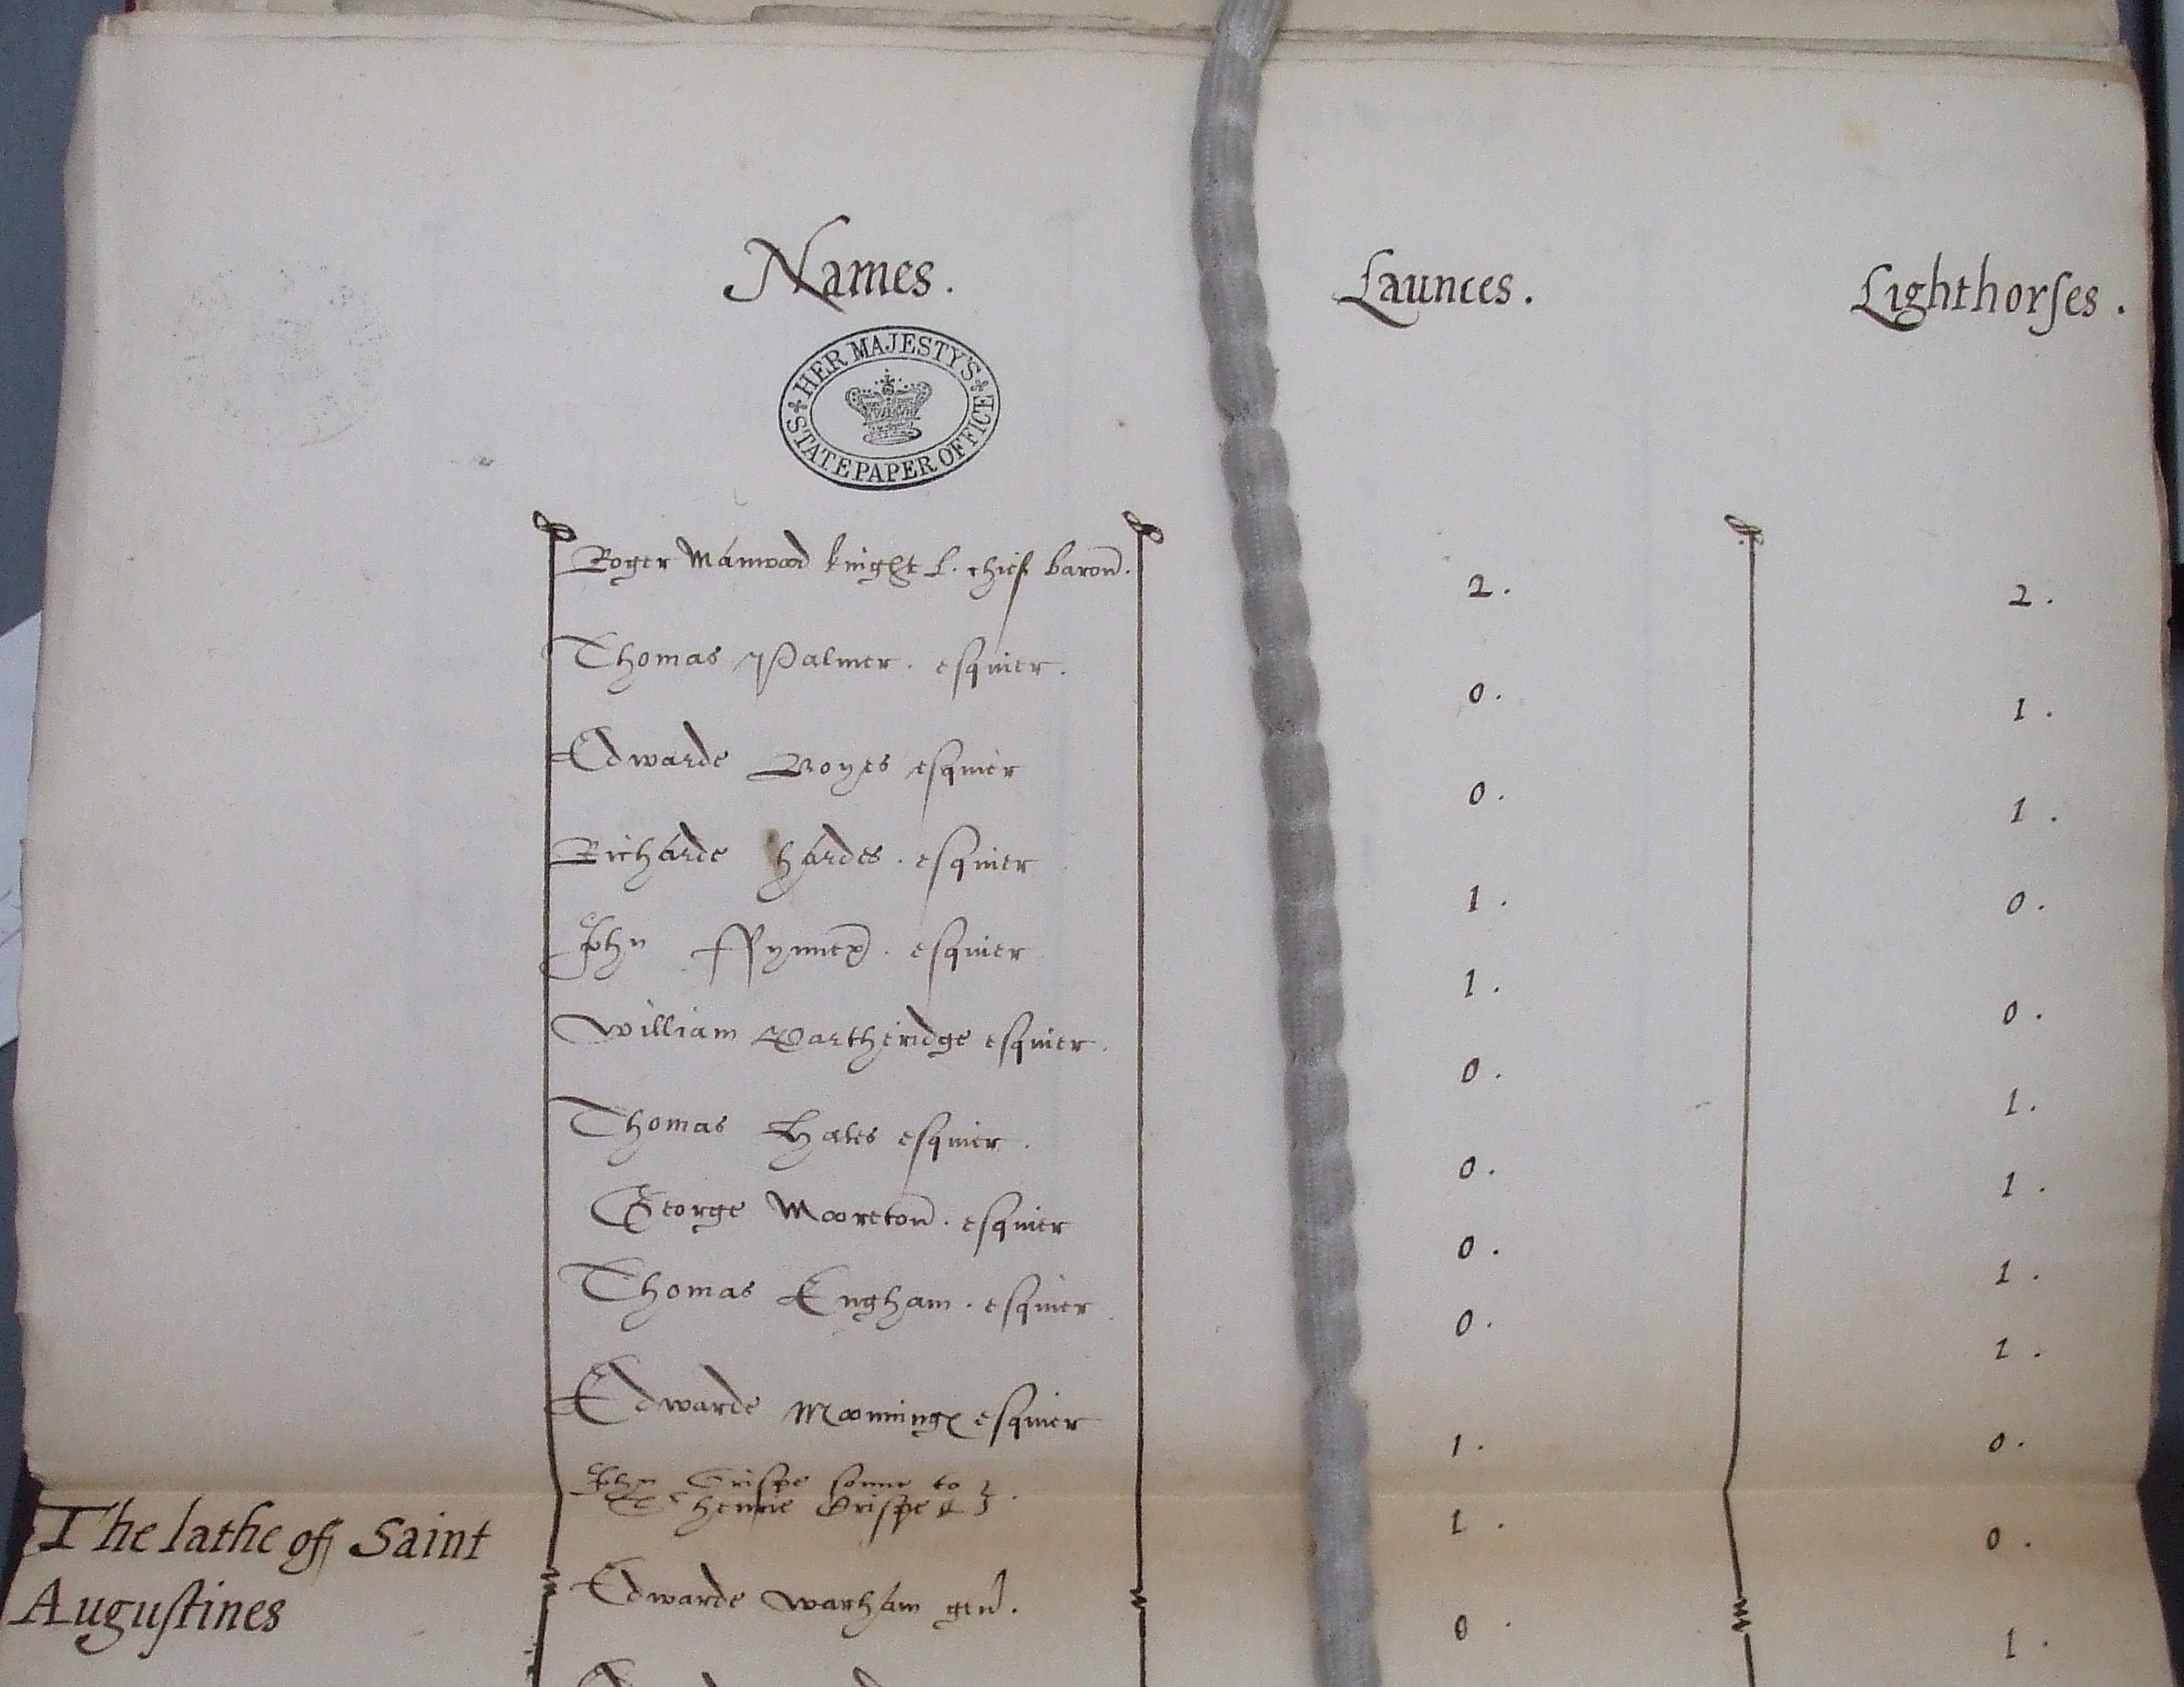 Names. Launces. Lighthorses.
HER MAJESTY'S STATE PAPER OFFICE
Roger Manwood knight L. chief baron. 2. 2.
Thomas Palmer. esquier. 0. 1.
Edwarde Boyes esquier 0. 1.
Richarde hardes. esquier 1. 0.
John esquier 1. 0.
William Partheridge esquier. 0. 1.
Thomas Hales esquier. 0. 1.
George Mooreton. esquier 0. 1.
Thomas Engham. esquier 0. 1.
Edwarde esquier 1. 0.
John Crispe sonne to
henrie Crispe 1. 0.
The lathe of Saint
Augustines
Edwarde warham gen. 0. 1.